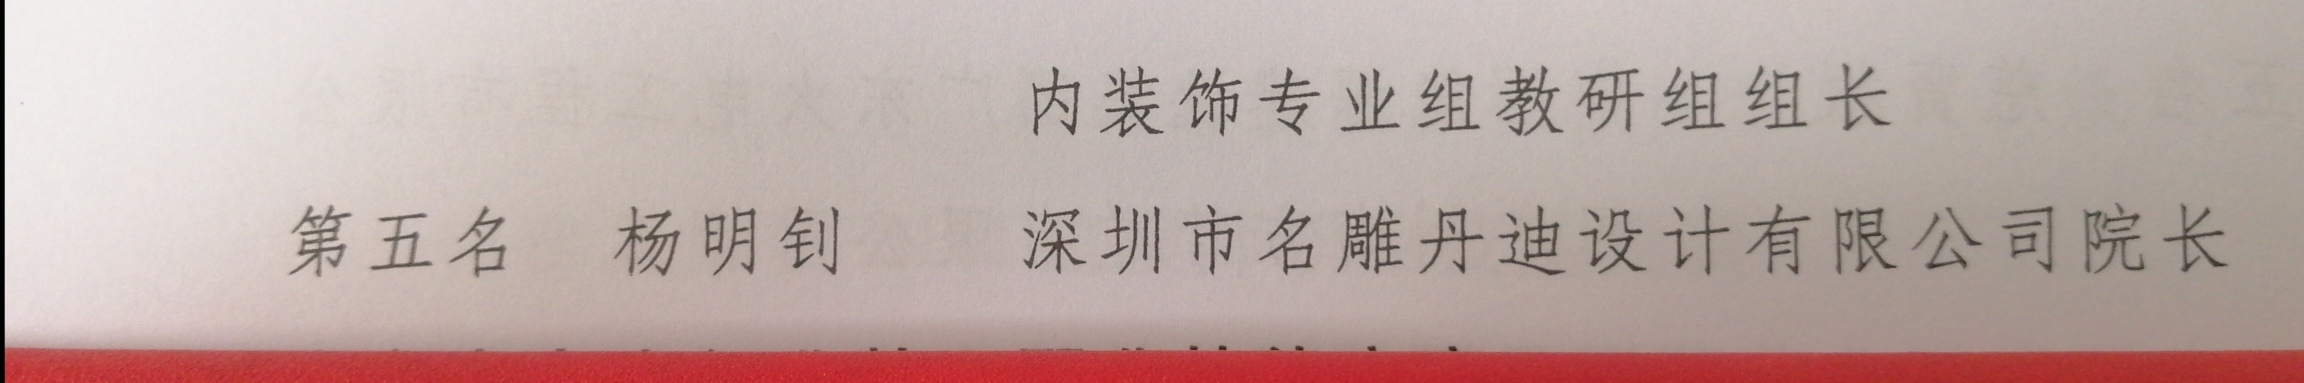 内装饰专业组教研组组长
第五名 杨明钊 深圳市名雕丹迪设计有限公司院长